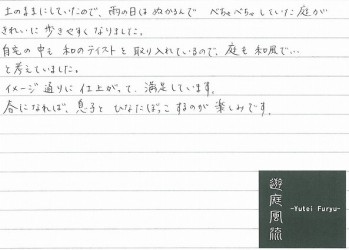 土のままにしていたので、雨の日は ぬかるんで べちゃべちゃしていた庭が
きれいに 歩きやすくなりました。
自宅の中も 和のテイストを取り入れているので、庭も和風で…
と考えていました。
イメージ通りに仕上がって、満足しています。
春になれば、息子と ひなたぼっこ するのが 楽しみです。
遊庭風流
-Yutei Furyu-